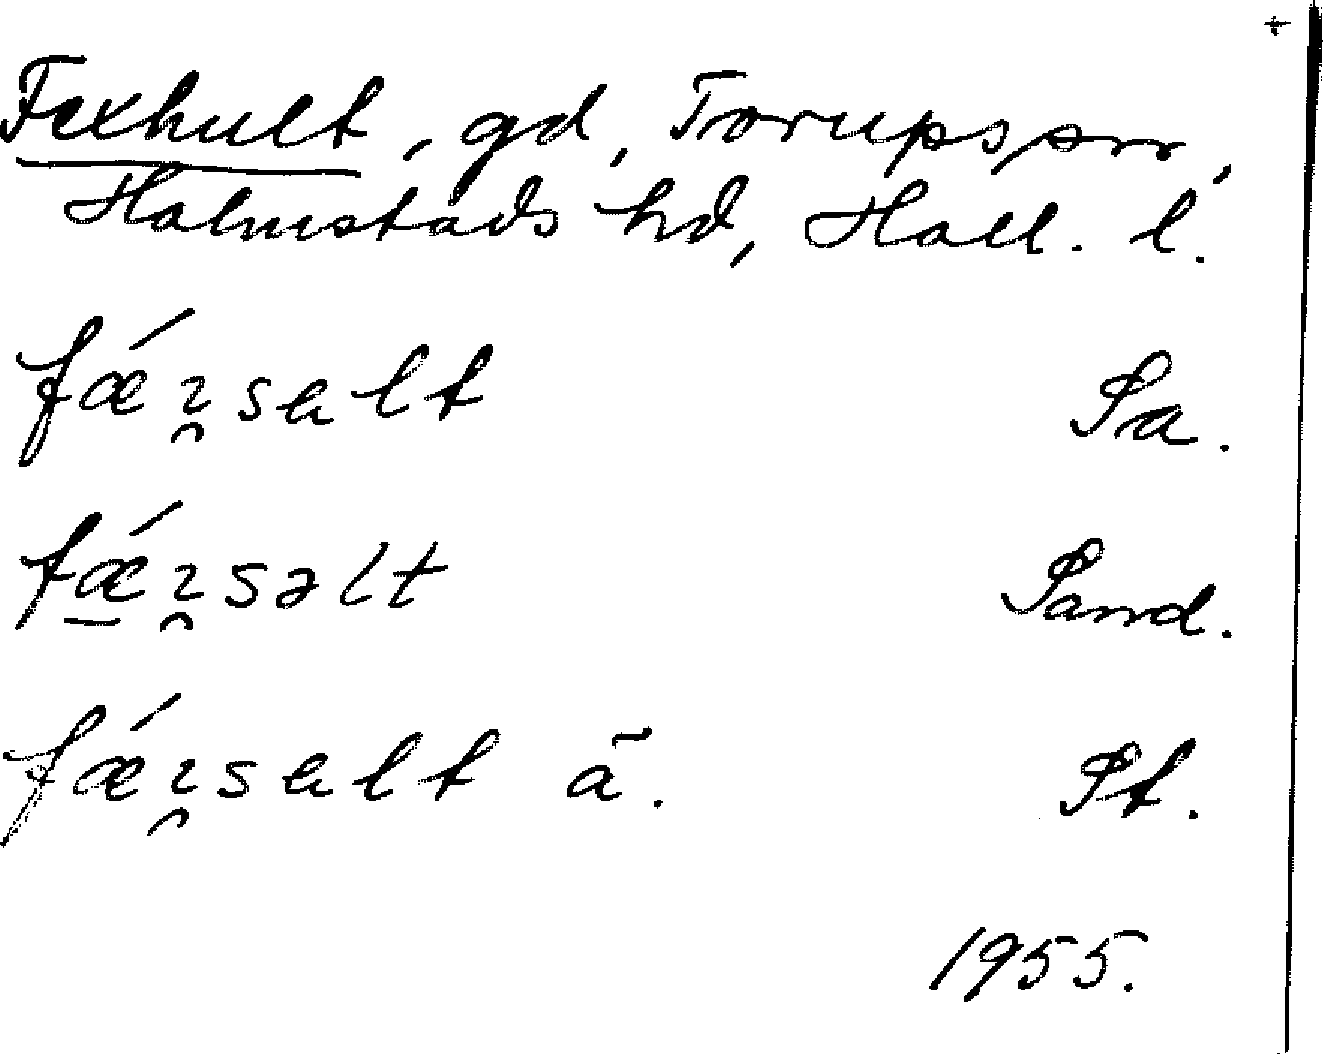 +
Fexhult, gd, Torups sn,
Halmstads hd, Hall. l.
fǽɿ̯salt Sa.
fǽɿ̯səlt Sand.
fǽɿ̯salt ā. St.
1955.